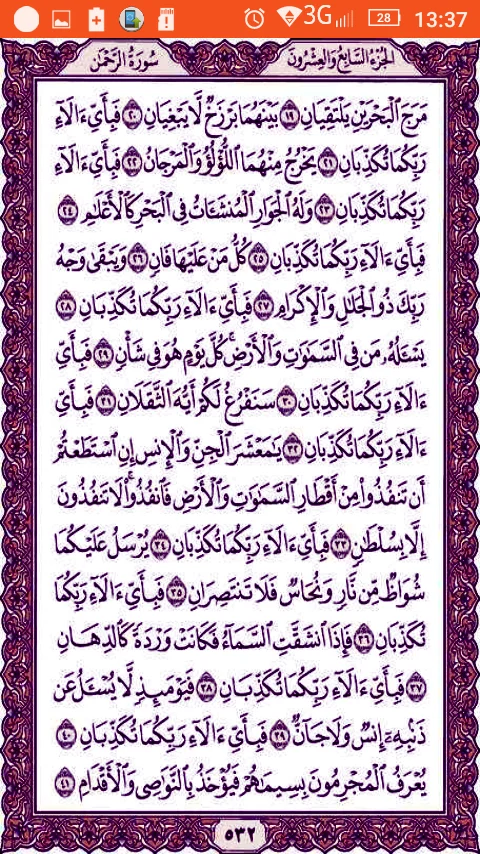 3G 28 13:37
سُورَةُ الرَّحْمٰن الجُزْءُ السَّابِعُ وَالعِشْرُونَ
مَرَجَ ٱلْبَحْرَيْنِ يَلْتَقِيَانِ ١٩ بَيْنَهُمَا بَرْزَخٌ لَّا يَبْغِيَانِ ٢٠ فَبِأَىِّ ءَالَآءِ
رَبِّكُمَا تُكَذِّبَانِ ٢١ يَخْرُجُ مِنْهُمَا ٱللُّؤْلُؤُ وَٱلْمَرْجَانُ ٢٢ فَبِأَىِّ ءَالَآءِ
رَبِّكُمَا تُكَذِّبَانِ ٢٣ وَلَهُ ٱلْجَوَارِ ٱلْمُنشَـَٔاتُ فِى ٱلْبَحْرِ كَٱلْأَعْلَـٰمِ ٢٤
فَبِأَىِّ ءَالَآءِ رَبِّكُمَا تُكَذِّبَانِ ٢٥ كُلُّ مَنْ عَلَيْهَا فَانٍ ٢٦ وَيَبْقَىٰ وَجْهُ
رَبِّكَ ذُو ٱلْجَلَـٰلِ وَٱلْإِكْرَامِ ٢٧ فَبِأَىِّ ءَالَآءِ رَبِّكُمَا تُكَذِّبَانِ ٢٨
يَسْـَٔلُهُۥ مَن فِى ٱلسَّمَـٰوَٰتِ وَٱلْأَرْضِ ۚ كُلَّ يَوْمٍ هُوَ فِى شَأْنٍ ٢٩ فَبِأَىِّ
ءَالَآءِ رَبِّكُمَا تُكَذِّبَانِ ٣٠ سَنَفْرُغُ لَكُمْ أَيُّهَ ٱلثَّقَلَانِ ٣١ فَبِأَىِّ
ءَالَآءِ رَبِّكُمَا تُكَذِّبَانِ ٣٢ يَـٰمَعْشَرَ ٱلْجِنِّ وَٱلْإِنسِ إِنِ ٱسْتَطَعْتُمْ
أَن تَنفُذُوا۟ مِنْ أَقْطَارِ ٱلسَّمَـٰوَٰتِ وَٱلْأَرْضِ فَٱنفُذُوا۟ ۚ لَا تَنفُذُونَ
إِلَّا بِسُلْطَـٰنٍ ٣٣ فَبِأَىِّ ءَالَآءِ رَبِّكُمَا تُكَذِّبَانِ ٣٤ يُرْسَلُ عَلَيْكُمَا
شُوَاظٌ مِّن نَّارٍ وَنُحَاسٌ فَلَا تَنتَصِرَانِ ٣٥ فَبِأَىِّ ءَالَآءِ رَبِّكُمَا
تُكَذِّبَانِ ٣٦ فَإِذَا ٱنشَقَّتِ ٱلسَّمَآءُ فَكَانَتْ وَرْدَةً كَٱلدِّهَانِ
٣٧ فَبِأَىِّ ءَالَآءِ رَبِّكُمَا تُكَذِّبَانِ ٣٨ فَيَوْمَئِذٍ لَّا يُسْـَٔلُ عَن
ذَنۢبِهِۦٓ إِنسٌ وَلَا جَآنٌّ ٣٩ فَبِأَىِّ ءَالَآءِ رَبِّكُمَا تُكَذِّبَانِ ٤٠
يُعْرَفُ ٱلْمُجْرِمُونَ بِسِيمَـٰهُمْ فَيُؤْخَذُ بِٱلنَّوَٰصِى وَٱلْأَقْدَامِ ٤١
٥٣٢